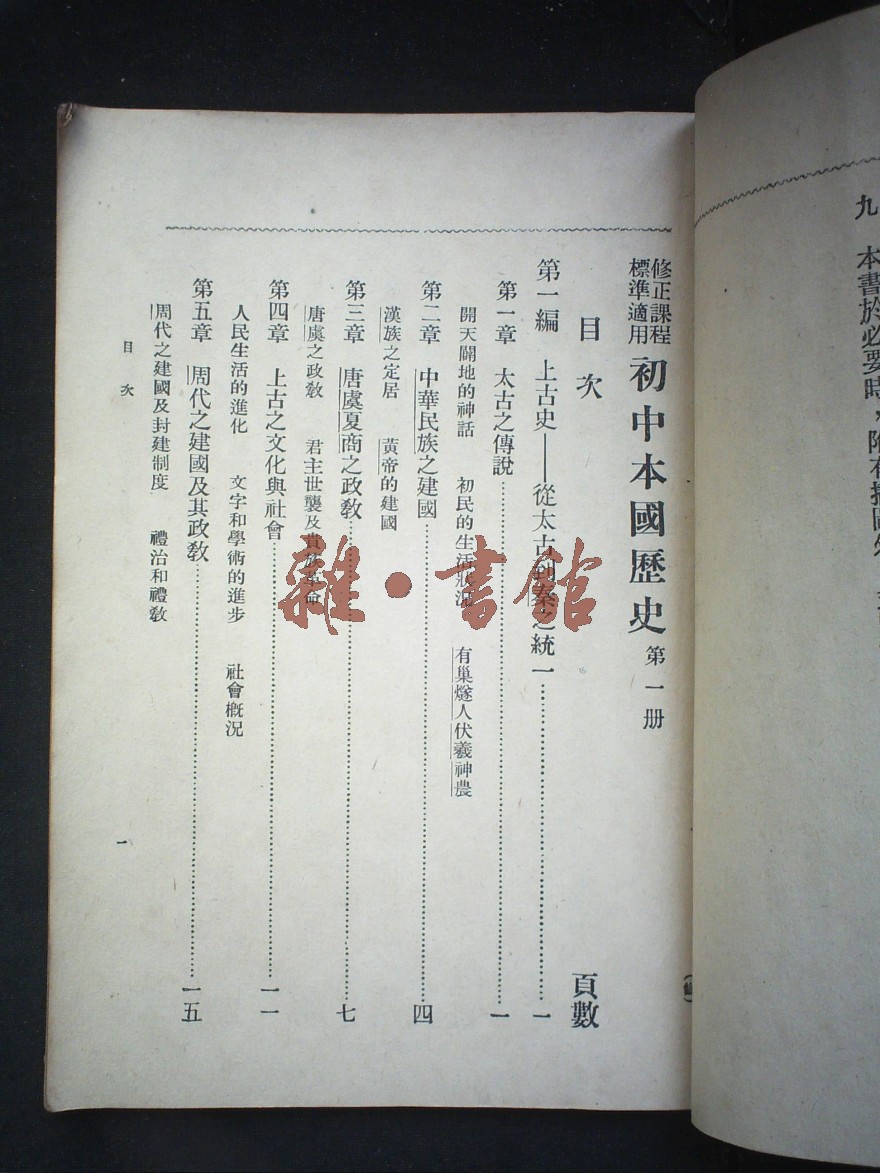 九　本書於必要時，附有插圖
修正課程
標準適用
初中本國歷史　第一册
目次　頁數
第一編　上古史——從太古到秦之統一……一
第一章　太古之傳說……一
開天闢地的神話　初民的生活狀況　有巢燧人伏羲神農
第二章　中華民族之建國……四
漢族之定居　黃帝的建國
第三章　唐虞夏商之政教……七
唐虞之政教　君主世襲及貴族革命
第四章　上古之文化與社會……一一
人民生活的進化　文字和學術的進步　社會概況
第五章　周代之建國及其政教……一五
周代之建國及封建制度　禮治和禮教
目次　一
雜·書館